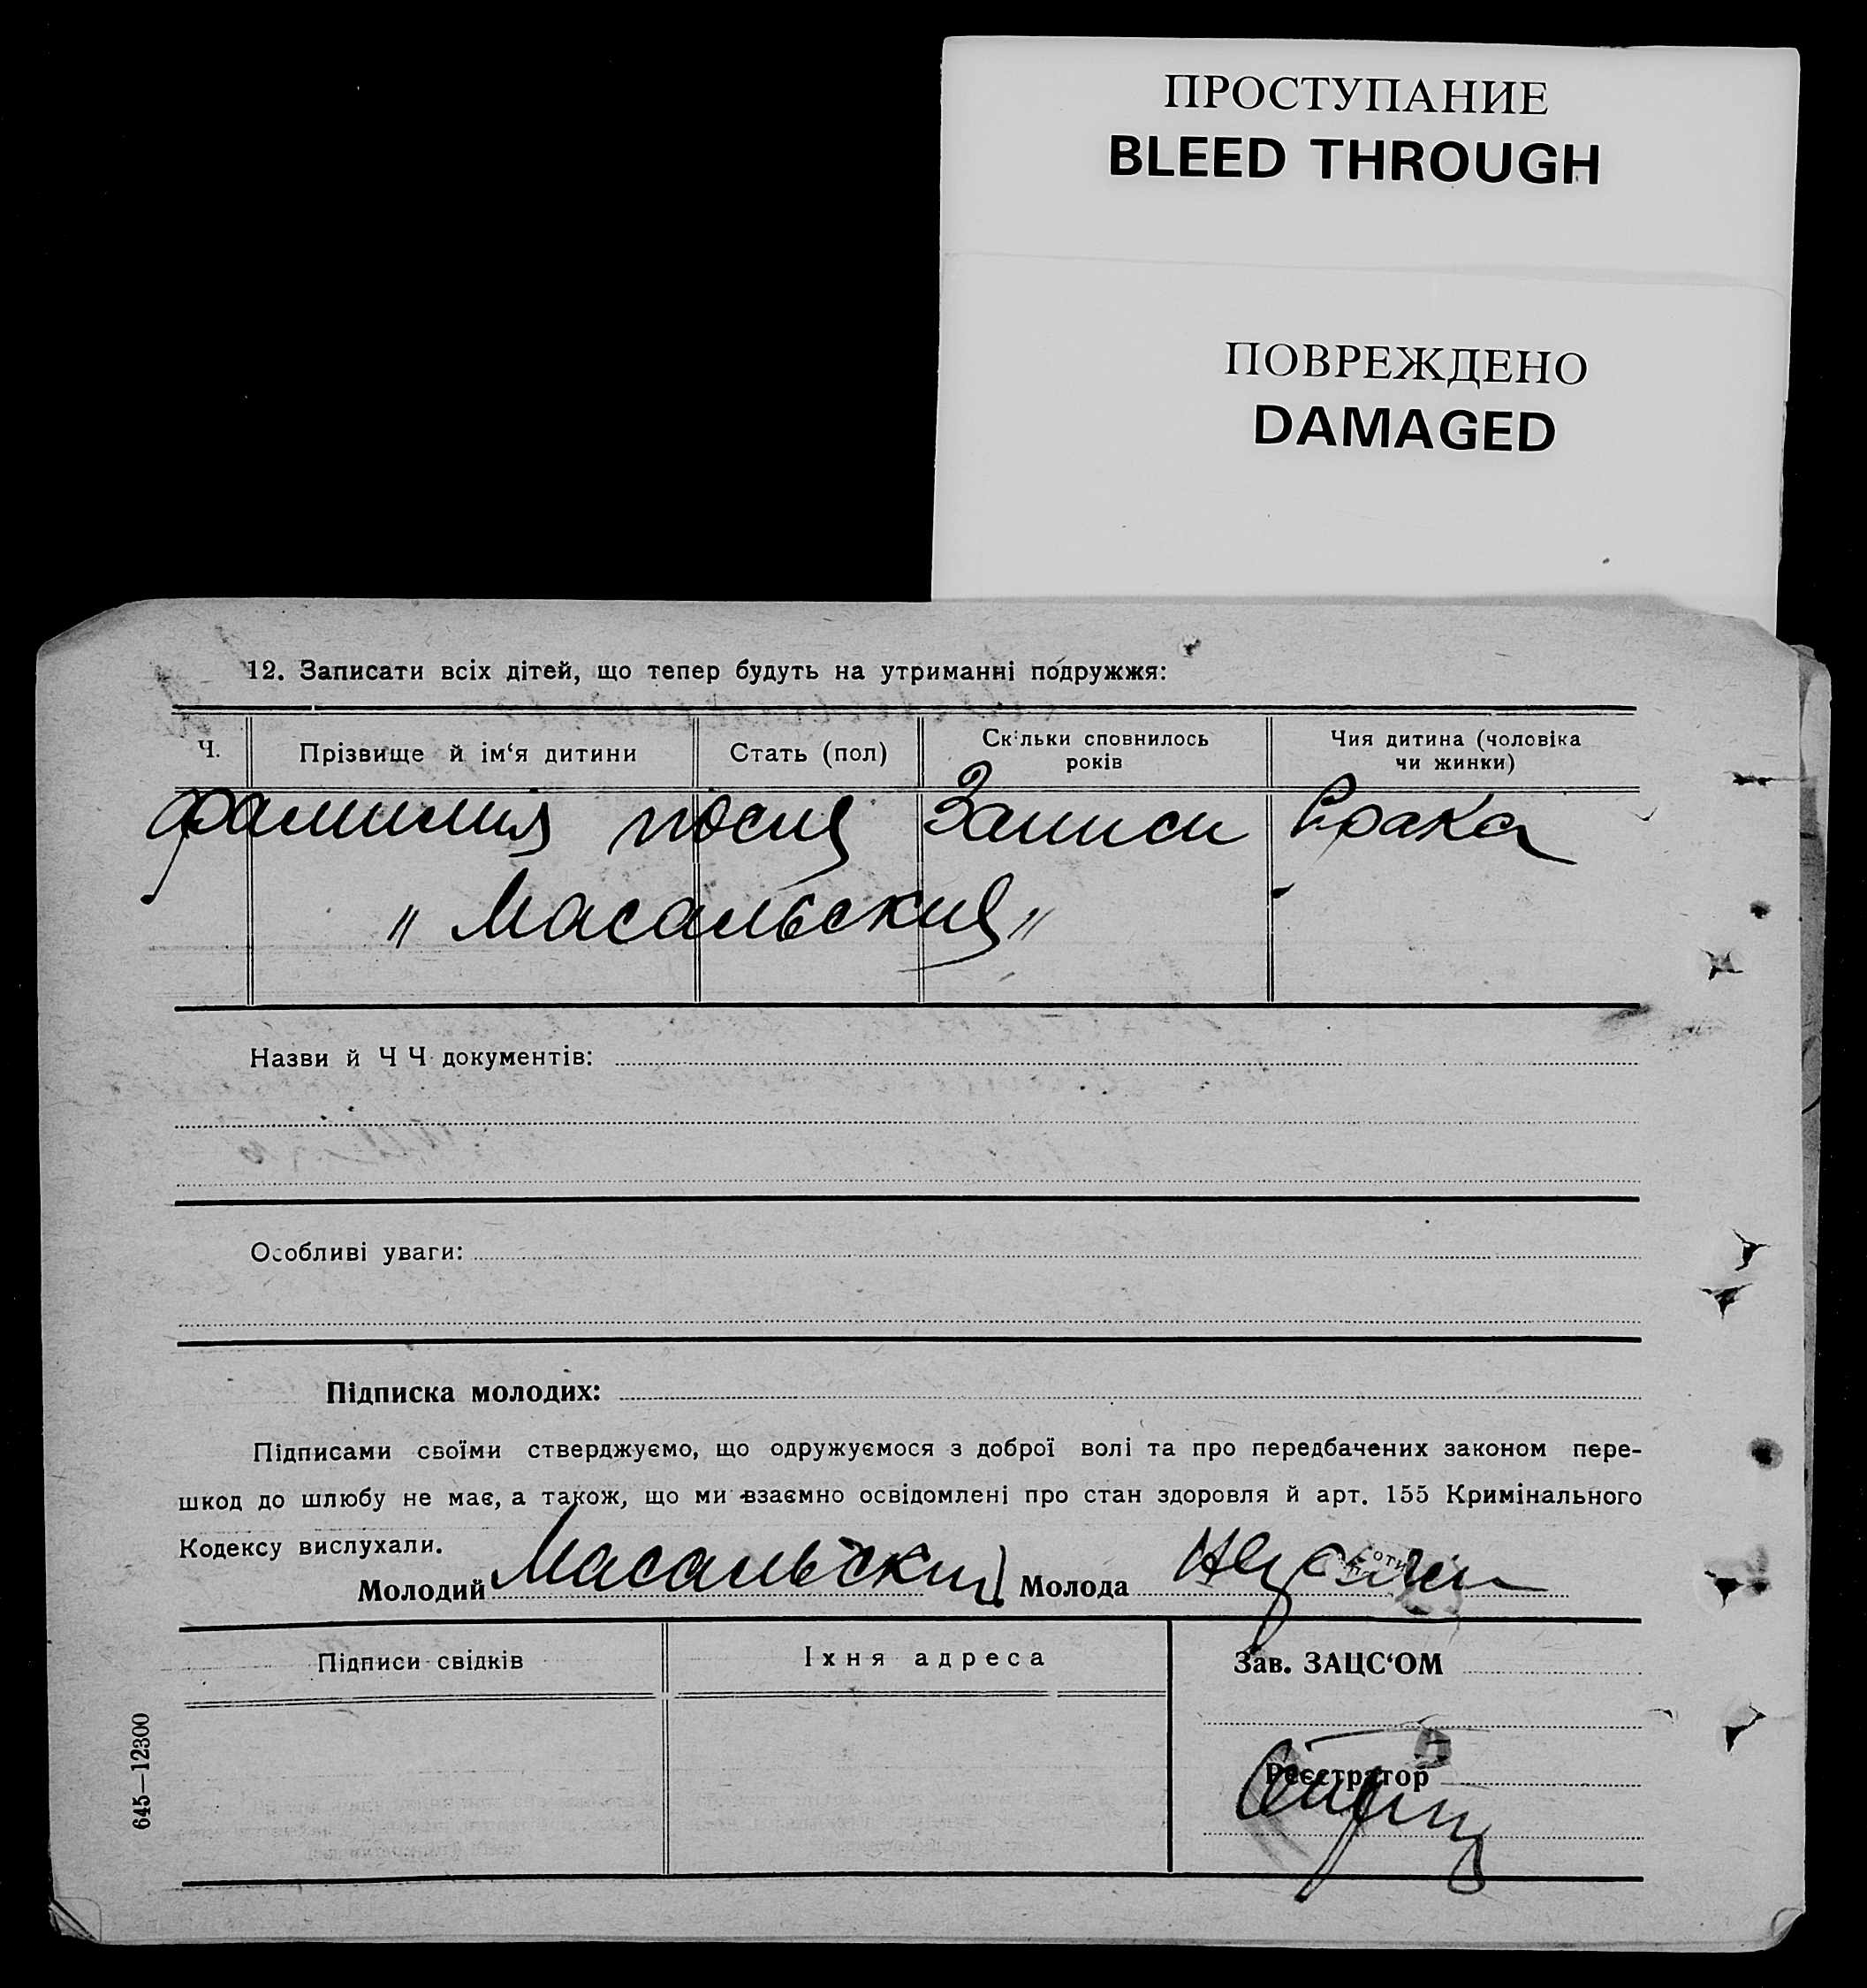 ПРОСТУПАНИЕ
BLEED THROUGH
ПОВРЕЖДЕНО
DAMAGED
12. Записати всіх дітей, що тепер будуть на утриманні подружжя:
Ч. Прізвище й ім‘я дитини Стать (пол) Скільки сповнилось років Чия дитина (чоловіка чи жинки)
фамилия после записи брака
„ Масальский "
Назви й Ч Ч документів:
Особливі уваги:
Підписка молодих:
Підписами своїми стверджуємо, що одружуємося з доброї волі та про передбачених законом пере-
шкод до шлюбу не має, а також, що ми взаємно освідомлені про стан здоровля й арт. 155 Кримінального
Кодексу вислухали.
Молодий Масальский Молода
Підписи свідків Їхня адреса Зав. ЗАЦС‘ОМ
Реєстратор
645—12300